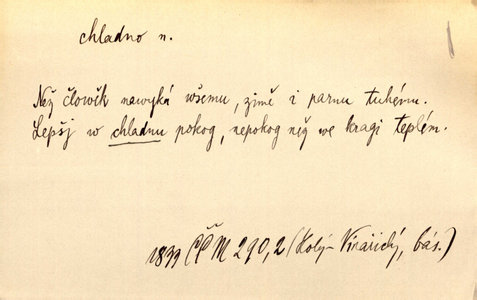 chladno n.
Neź človĕk nawyká wšemu, zimĕ i parnu tuhému.
Lepšj w chladnu pokog, nepokog nĕź we kragi teplém.
1833 ČČM 290,2 (Holý-Vinařický, bás.)